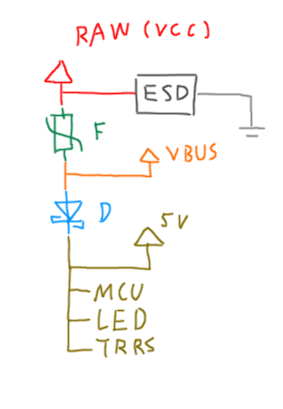 RAW (VCC)
ESD
F
VBUS
D
5V
MCU
LED
TRRS